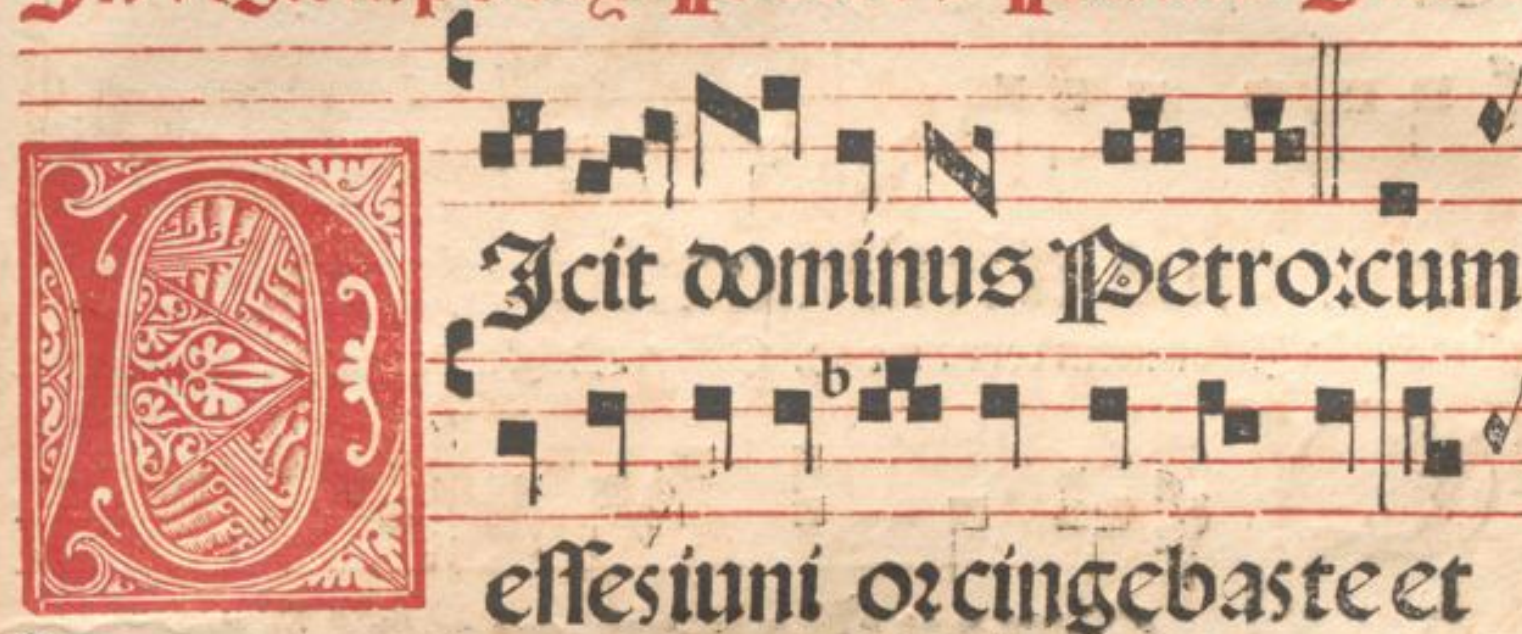 DIcit dominus Petro:cum
esses iuni or cingebas te et